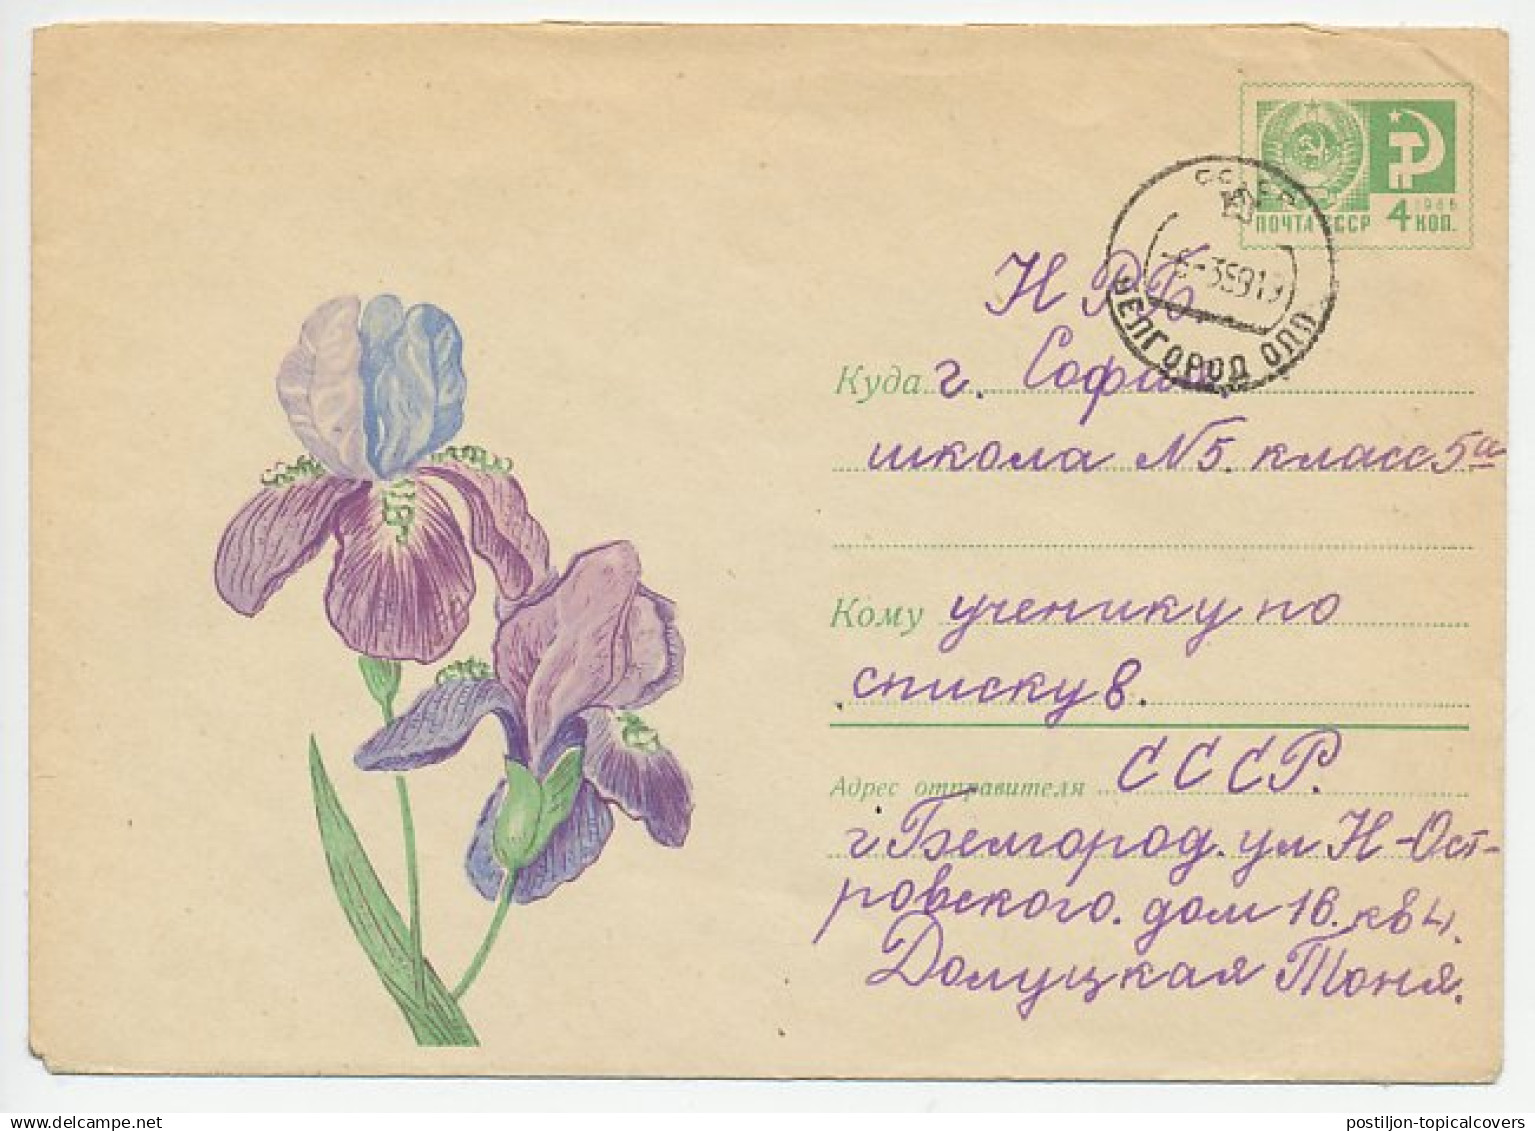 ПОЧТА СССР 4 КОП.
1966
СССР
БЕЛГОРОД ОПП
НРБ.
Куда г. София
школа N5. класс 5а
Кому ученику по
списку 8.
Адрес отправителя СССР.
г Белгород. ул Н-Ост-
ровского. дом 16. кв 4.
Долуцкая Тоня.
postiljon-topicalcovers